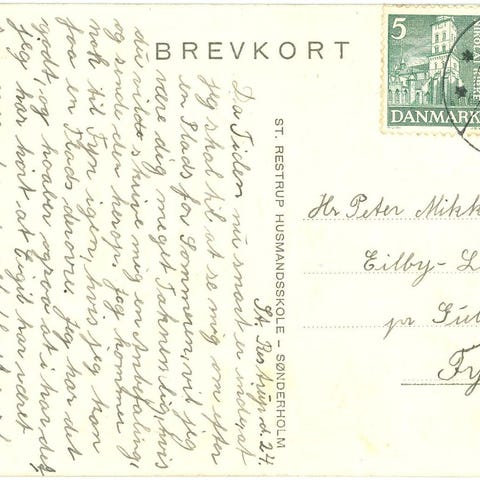 BREVKORT
5
DANMARK
ST. RESTRUP HUSMANDSSKOLE – SØNDERHOLM
St. Restrup d. 24.
Da Tiden nu snart er indgaat
Jeg skal til at se mig om efter
en Plads for Sommeren, vil jeg
være dig meget Taknemlig, hvis
du vilde skrive mig en Anbefaling,
og sende den herop. Jeg kommer
nok til Fyn igen, hvis jeg kan
faa en Plads derovre. Jeg har det
godt, og haaber ogsaa at i har det,
jeg har hørt at Eigil har været
Hr Peter Mikk
Eilby - L
pr
Fy